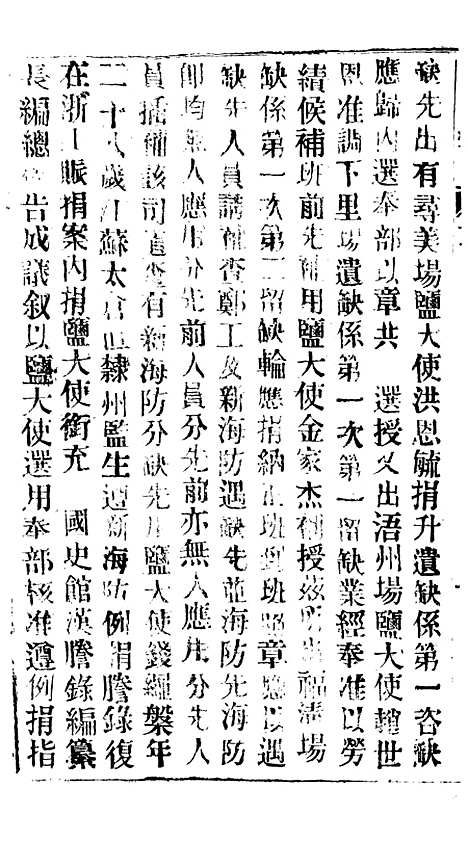 缺先出有尋美場鹽大使洪恩毓捐升遺缺係第一咨缺
應歸內選奉部以章共 選授又出浯州場鹽大使趙世
恩准調下里場遺缺係第一次第一留缺業經奉准以勞
績候補班前先補用鹽大使金家杰補授茲出福清場
缺係第一次第二留缺輪應捐納正班到班照章應以遇
缺先人員請補查鄭工及新海防遇缺先並海防先海防
即均無人應用分先前人員分先前亦無人應用分先人
員擬補該司道查有新海防分缺先用鹽大使錢繩槃年
二十八歲江蘇太倉直隸州監生遵新海防例捐謄錄復
在浙江賑捐案內捐鹽大使銜充 國史館漢謄錄編纂
長編總 告成議叙以鹽大使選用奉部核准遵例捐指